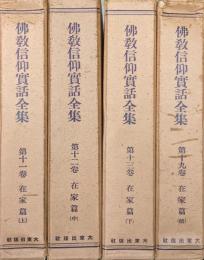 佛教信仰實話全集
第十一卷 在家篇(上)
大東出版社
佛教信仰實話全集
第十二卷 在家篇(中)
大東出版社
佛教信仰實話全集
第十三卷 在家篇(下)
大東出版社
佛教信仰實話全集
第十九卷 在家篇
大東出版社